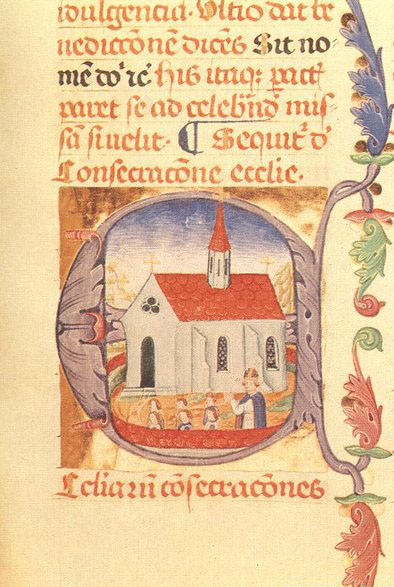 ıdulgencia. Ultio dat be
nediccōnē dicēs Sit no-
mē dōˈ ıc̄ his itaqꝫ pactˈ
paret se ad celebrˈnd mis
sā si uelit. ¶ Sequitˈ dˈ
Consecracōne ecclie.
Ecclīarū cōsecracōnes